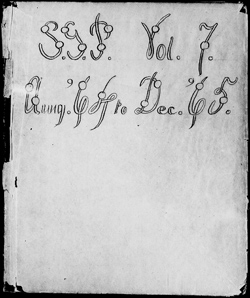 S.G.P. Vol. 7.
Aung. '64 to Dec. '65.